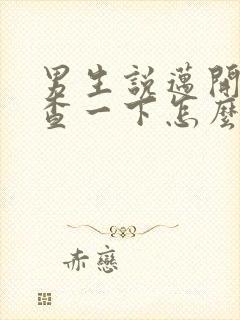 男生說邁開
查一下怎麼
赤戀